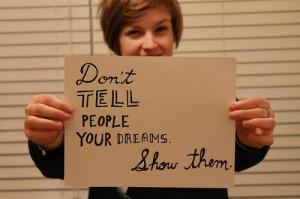 Don't
TELL
PEOPLE
YOUR DREAMS.
Show them.